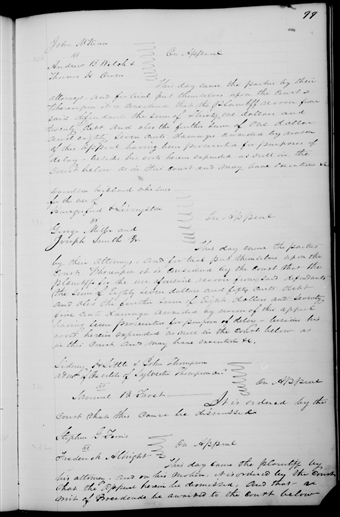 99
John
vs
Andrew B
Thomas H. Owen
On Appeal
This day came the parties by their
attorneys and for trial put themselves upon the Court &
thereupon it is considered that the Plaintiff recover from
said defendants the sum of Thirty one dollars and
twenty Debt And also the further sum of One dollar
and eighty seven cents damage awarded by reason
of this appeal having been prosecuted for purposes of
delay, beside his costs been expended as well in the
Court below as in this Court and may have execution &c
for the use of
& Livingston
vs
George and
Joseph Smith Jr.
On Appeal
This day came the parties
by their Attorneys And for trial put themselves upon the
Court Thereupon it is considered by the Court that the
Plaintiffs recover from said defendants
the Sum of Eighty seven dollars and fifty Debt
And also the further sum of Eight dollars and Seventy
five cents damage awarded by reason of this appeal
having been prosecuted for purposes of delay beside his
costs been expended as well in the Court below as
in this Court and may have execution &c.
Sidney S Little & John Thompson
Adm. of the estate of Sylvester Thompson
vs
Samuel B. Frost
On Appeal
It is ordered by the
Court that this Cause be dismissed
Stephen G
vs
Frederick Albright
On Appeal
This day came the plaintiff by
his attorney, and on his motion it is ordered by the Court
that the Appeal be dismissed, And that a
writ of Procedendo be awarded to the Court below